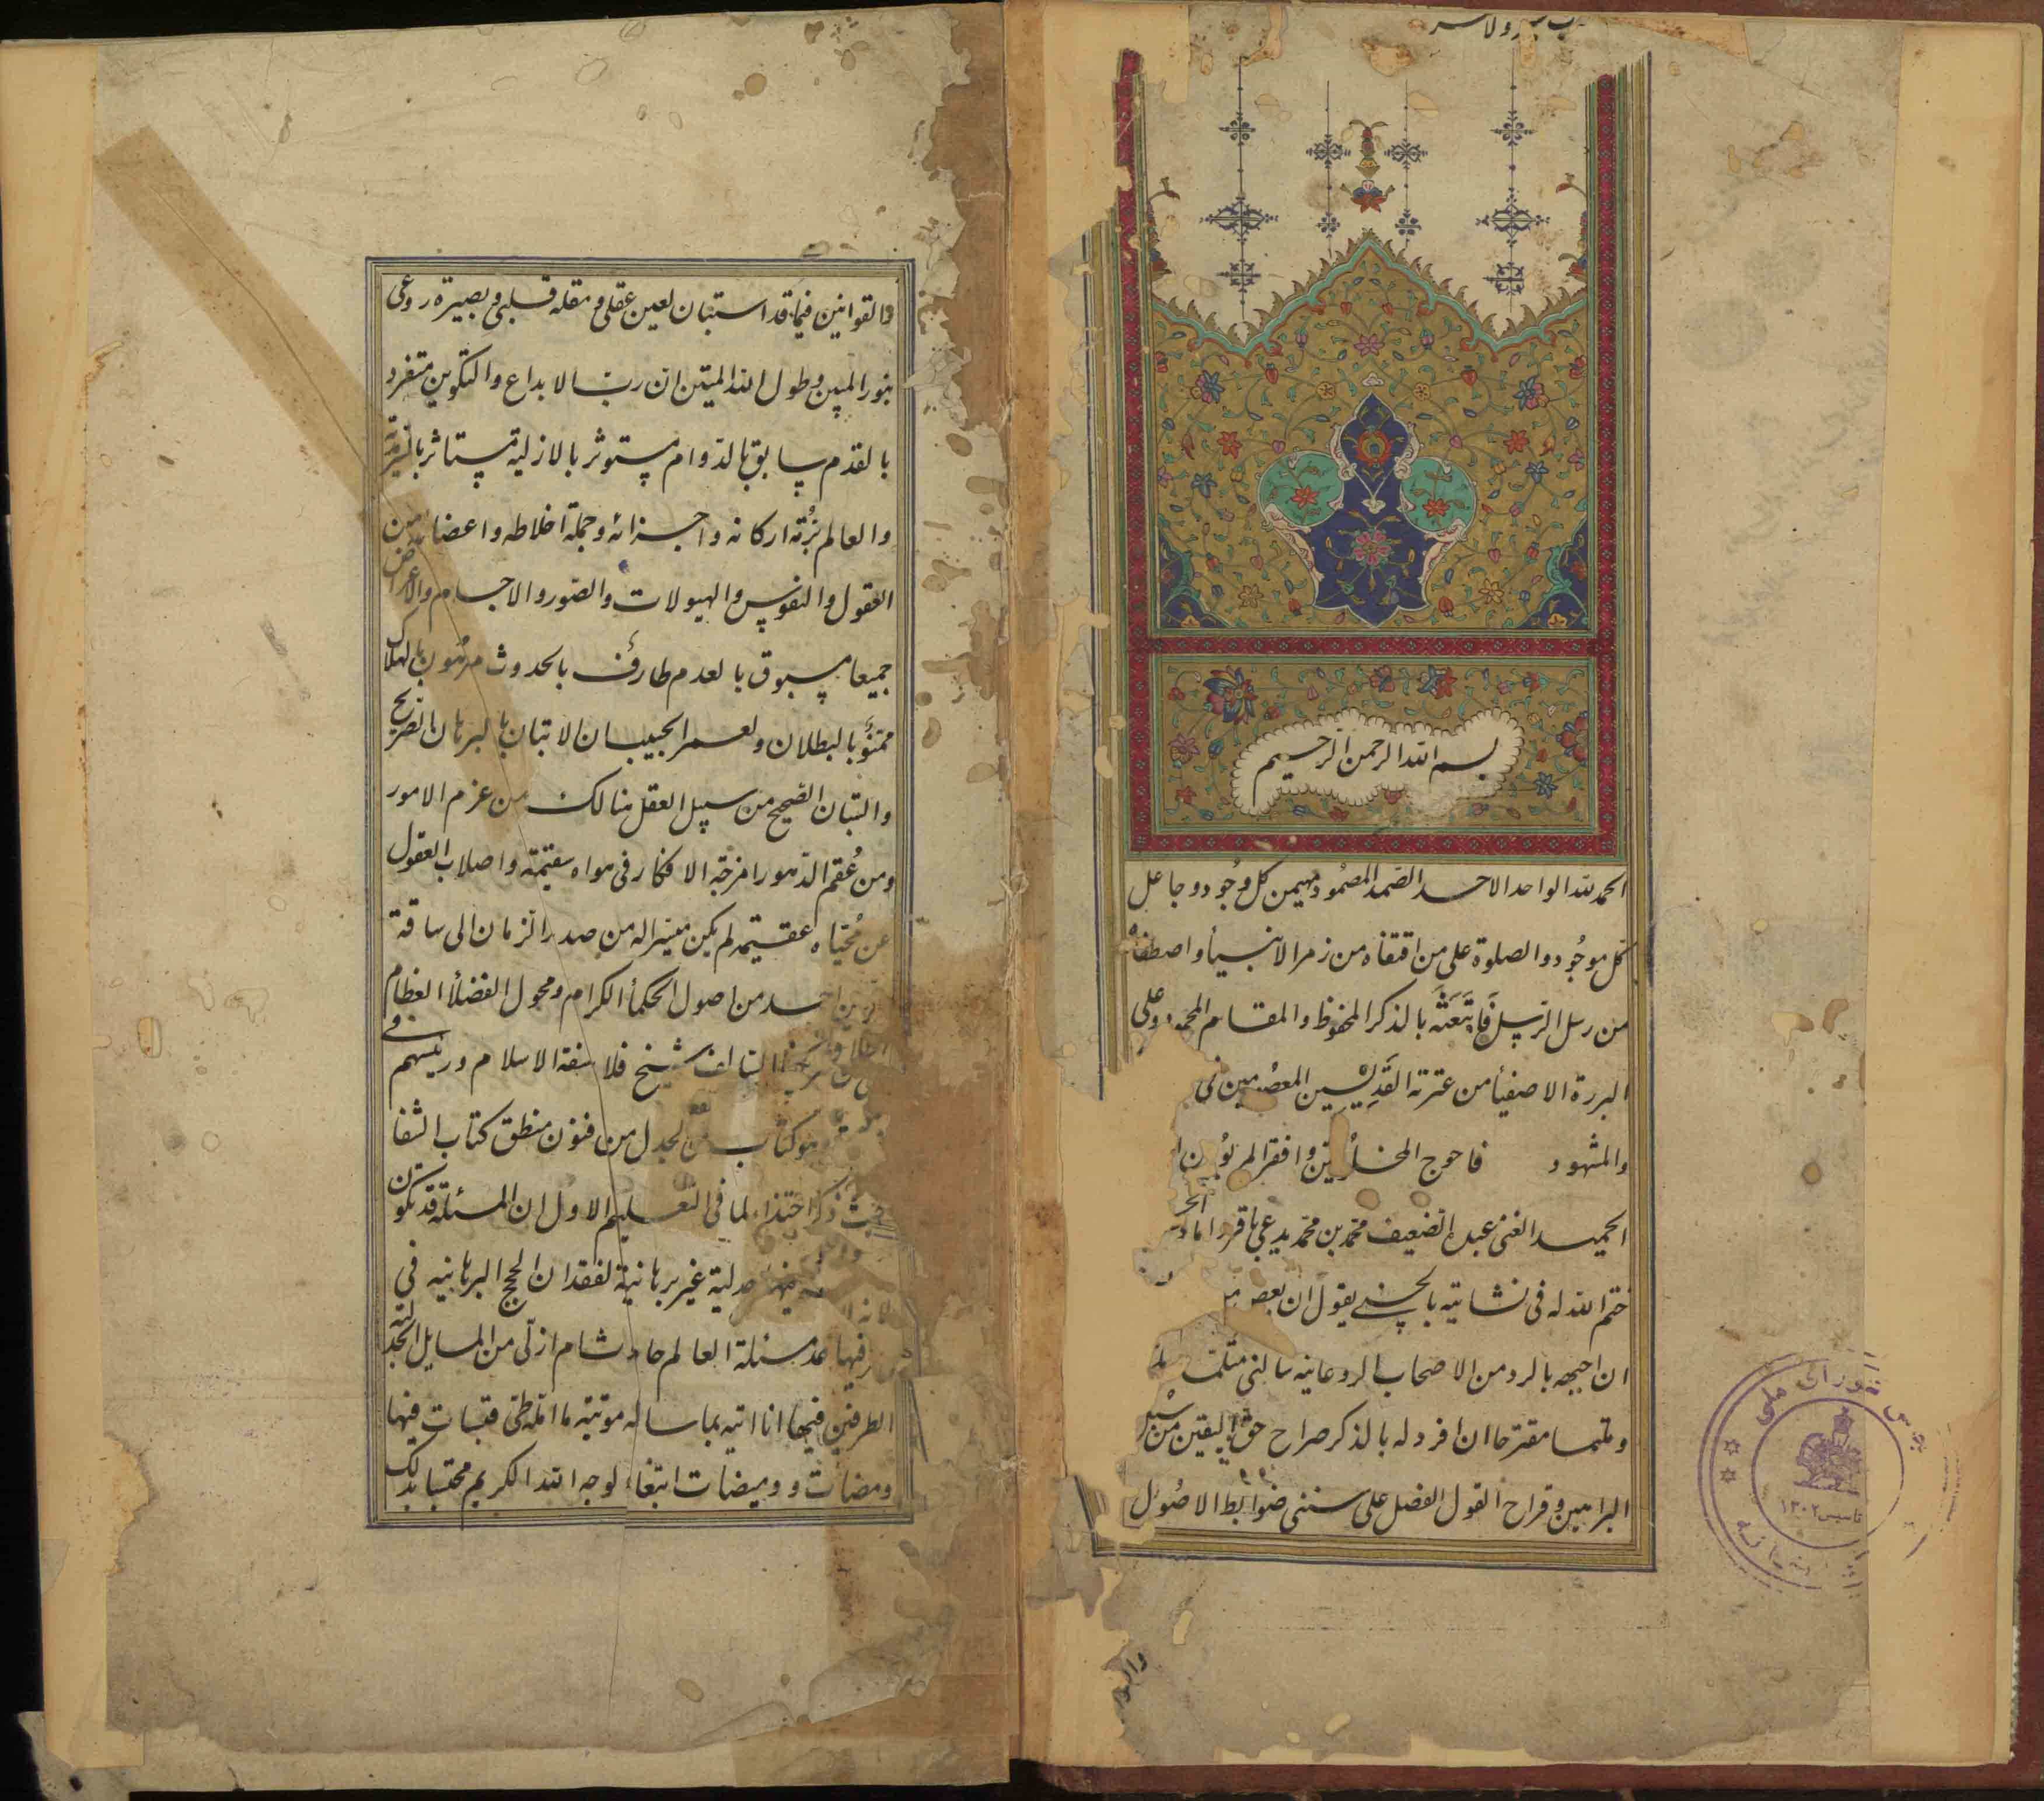 بسم الله الرحمن الرحیم
الحمد لله الواحد الاحد الصمد المصمود مهیمن کل وجود و جاعل
کل موجود والصلوة علی من اقتفاه من زمر الانبیاء واصطفاه
من رسل الرسل فابتعثه بالذکر المحفوظ والمقام المحمود وعلی
البررة الاصفیاء من عترته القدیسین المعصومین فی
والمشهود فاحوج المخلوقین وافقر المربوبین
الحمید الغنی عبده الضعیف محمد بن محمد یدعی باقر داماد
ختم الله له فی نشاتیه بالحسنی یقول ان بعض
ان اجبهه بالرد من الاصحاب الروعانیه سالنی
وملتمسا مقترحا ان افرد له بالذکر صراح حق الیقین من سبیل
البراهین وقراح القول الفصل علی سنن ضوابط الاصول
والقوانین فیما قد استبان لعین عقلی ومقلة قلبی وبصیرة روعی
بنور المبین وطول الله المتین ان رب الابداع والتکوین متفرد
بالقدم سابق بالدوام مستوثر بالازلیة مستاثر بالسرمدیة
والعالم برمته ارکانه واجزائه وجملة اخلاطه واعضائه من
العقول والنفوس والهیولات والصور والاجسام والاعراض
جمیعا مسبوق بالعدم طارف بالحدوث مرهون بالهلاک
ممنو بالبطلان ولعمر الحبیب ان الاتیان بالبرهان الصریح
والتبیان الصحیح من سبیل العقل هنالک من عزم الامور
ومن عقم الدهور امزجة الافکار فی هواه سقیمة واصلاب العقول
عن محیاه عقیمة لم یکن میسرا له من صدر الزمان الی ساقة
احد من اصول الحکماء الکرام وفحول الفضلاء العظام
شیخ فلاسفة الاسلام ورئیسهم فی
هو کتاب الجدل من فنون منطق کتاب الشفا
حیث ذکر احتذاء لما فی التعلیم الاول ان المسئلة قد تکون
جدلیة غیر برهانیة لفقدان الحجج البرهانیة فی
طرفیها عد مسئلة العالم حادث ام ازلی من المسایل الجدلیة
الطرفین فیها انا اتیه بما ساله موتیه ما امله طی قبسات فیها
ومضات وومیضات ابتغاء لوجه الله الکریم محتسبا بذلک
تاسیس ۱۳۰۲